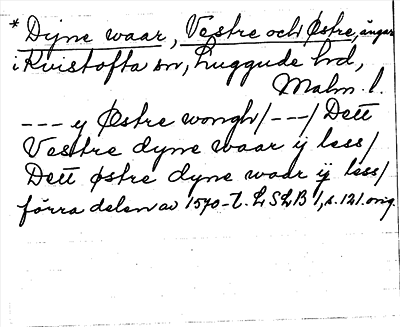 * Dyne waar, Vestre och Østre, ängar
i Kvistofta sn, Luggude hd,
Malm. l.
--- y Østre wongh/---/ Dett
Vesttre dyne waar ij less/
Dett østre dyne waar ij less/
förra delen av 1570-t. LSLB 1, s. 121. orig.